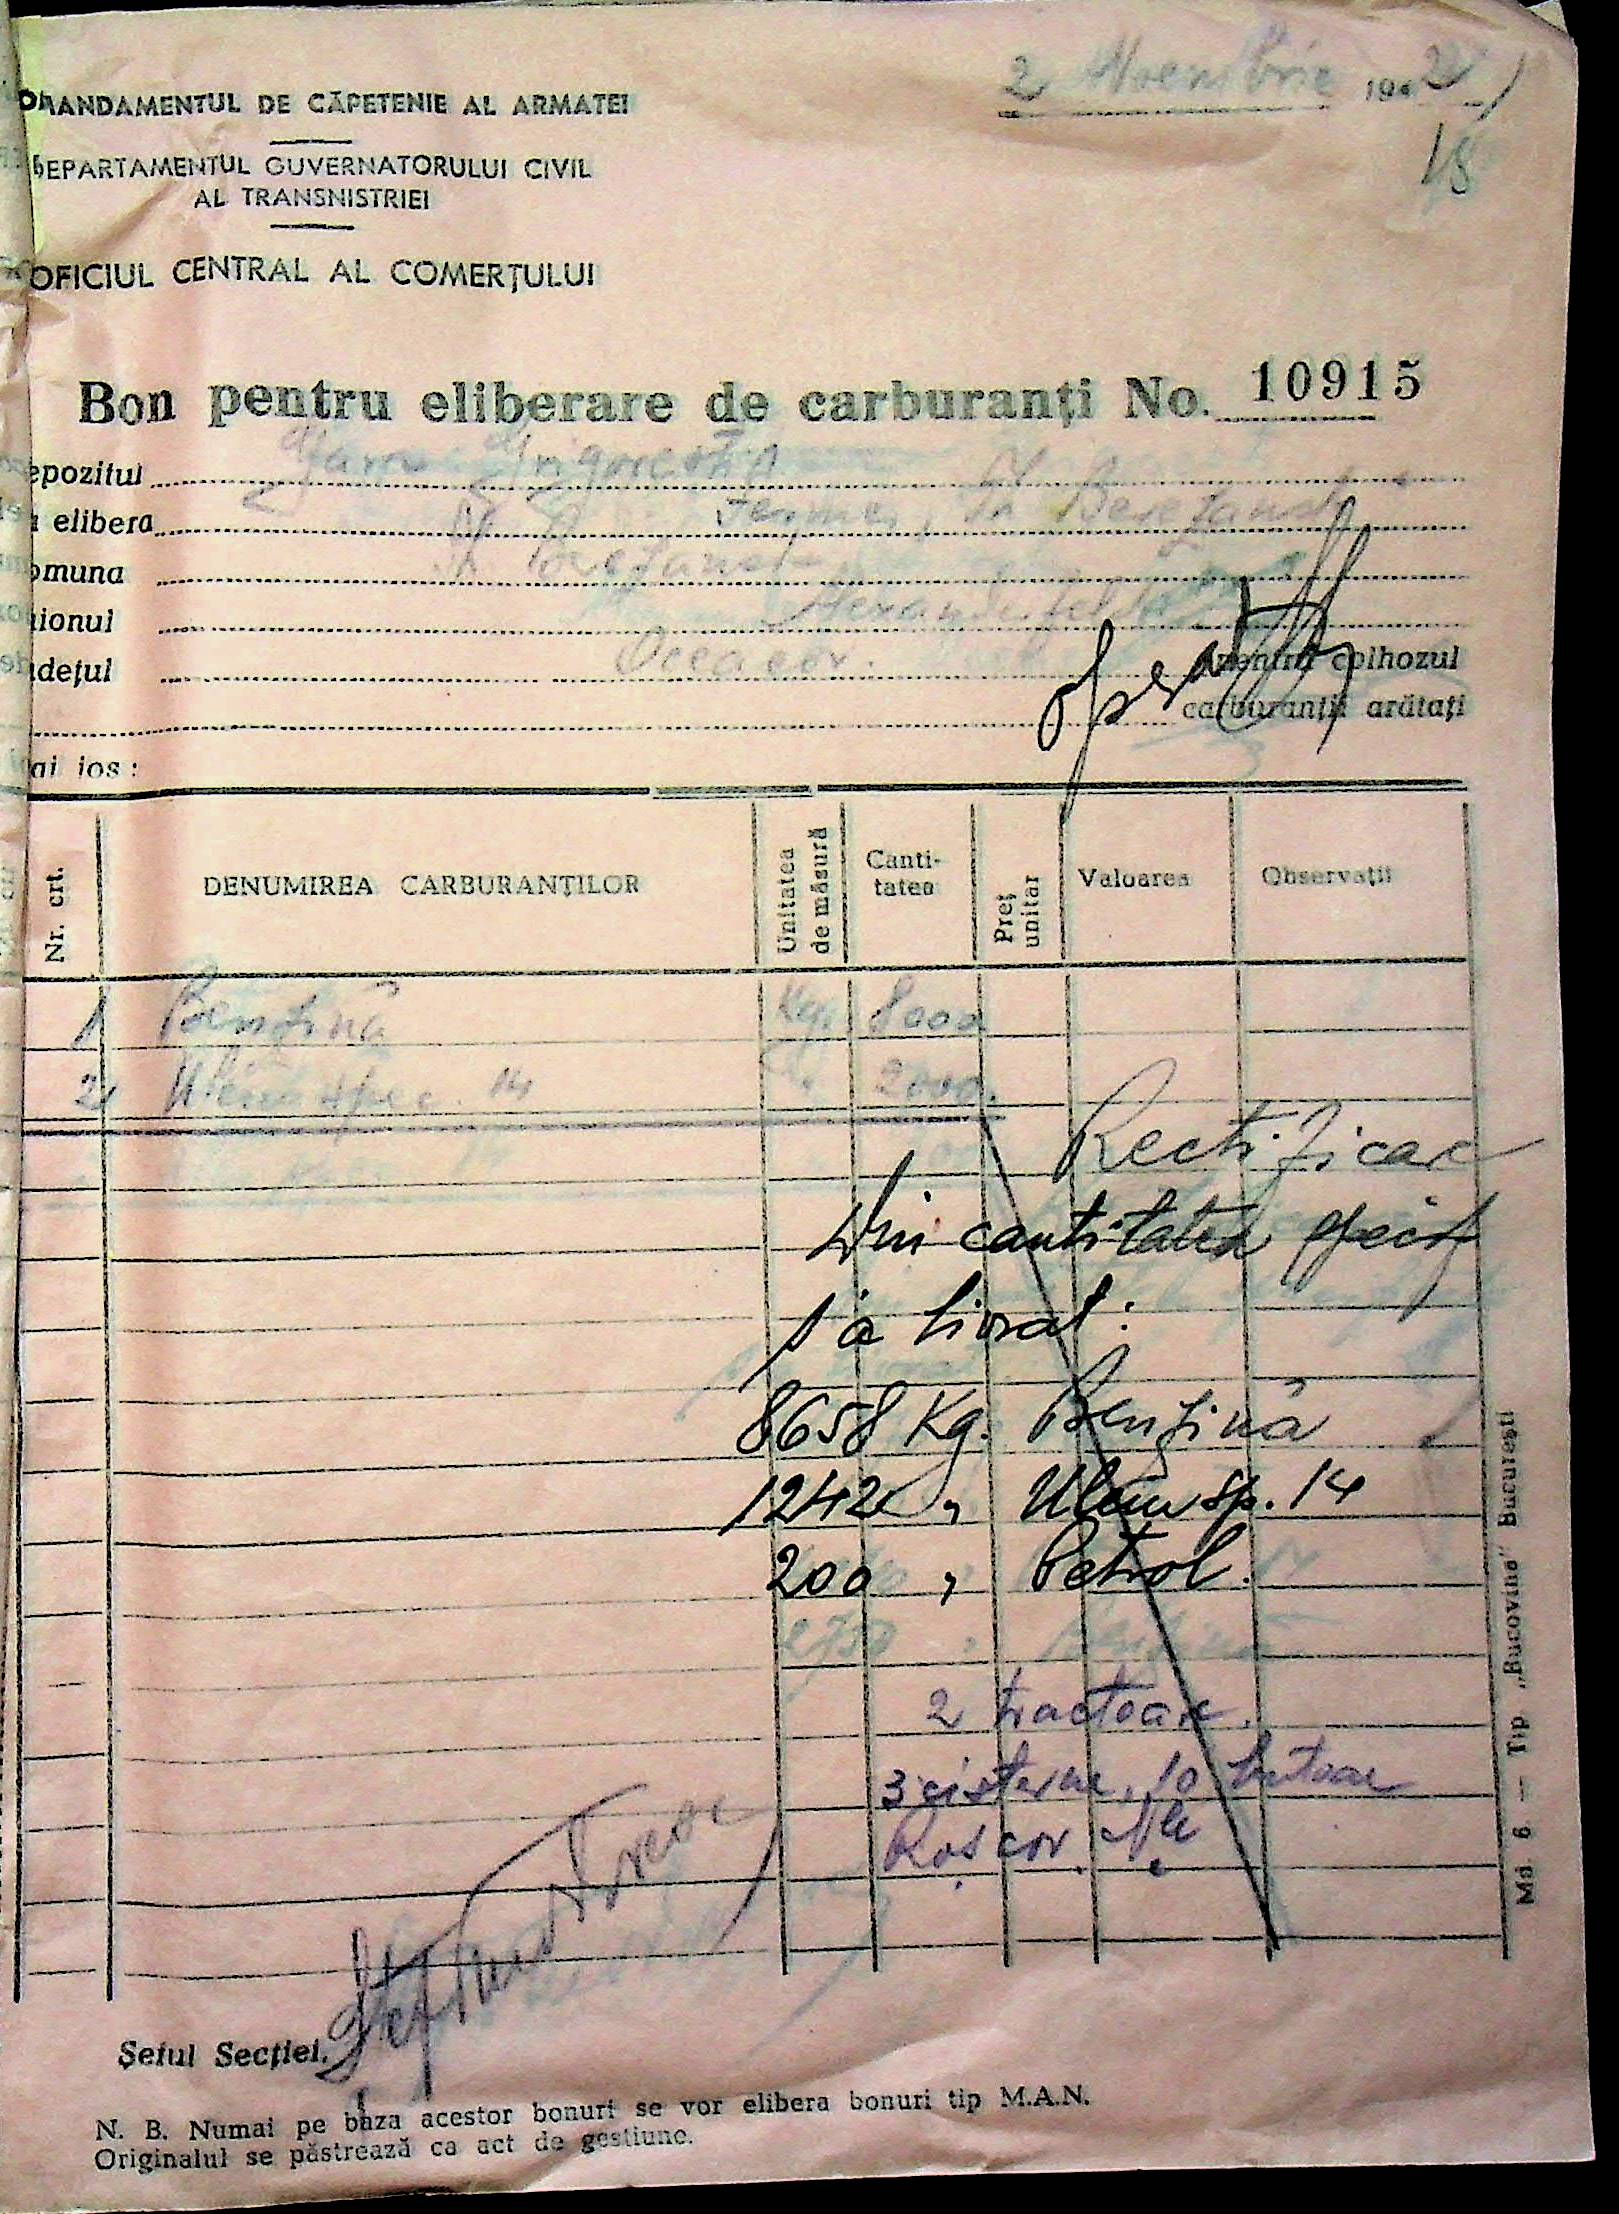 OMANDAMENTUL DE CĂPETENIE AL ARMATEI
2 Noembrie 1942
18
DEPARTAMENTUL GUVERNATORULUI CIVIL
AL TRANSNISTRIEI
OFICIUL CENTRAL AL COMERȚULUI
Bon pentru eliberare de carburanți No. 10915
epozitul
elibera
omuna
aionul
udețul Oceacov. pentru colhozul
carburanții arătați
ai jos :
Nr. crt. DENUMIREA CARBURANȚILOR Unitatea de măsură Canti-tatea Preț unitar Valoarea Observații
1 Benzină Kg. 8000
2 Uleiu spec. 14 2000.
Rectificare
Din cantitatea
s'a livrat:
8658 Kg. Benzină
1242 " Uleiu sp. 14
200 " Petrol.
2 tractoare.
3 cisterne, 10 butoae
Șeful Secției,
N. B. Numai pe baza acestor bonuri se vor elibera bonuri tip M.A.N.
Originalul se păstrează ca act de gestiune.
Md. 6 — Tip „Bucovina" București